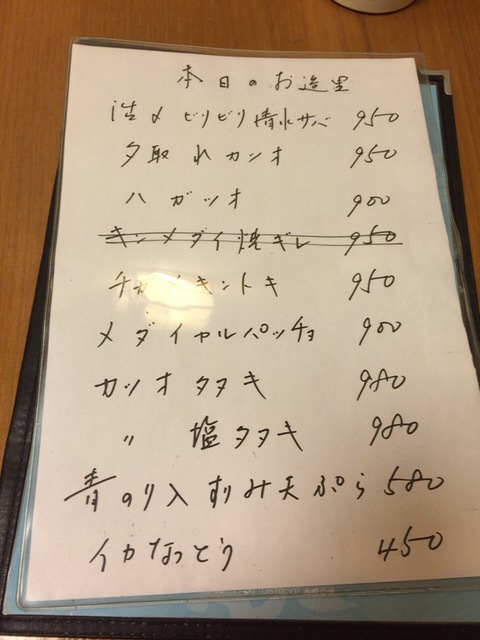 本日のお造里
活〆ビリビリ清水サバ 950
夕取れカツオ 950
ハガツオ 900
キンメダイ焼ギレ 950
チカメキントキ 950
メダイカルパッチョ 900
カツオタタキ 980
〃 塩タタキ 980
青のり入すりみ天ぷら 580
イカなっとう 450